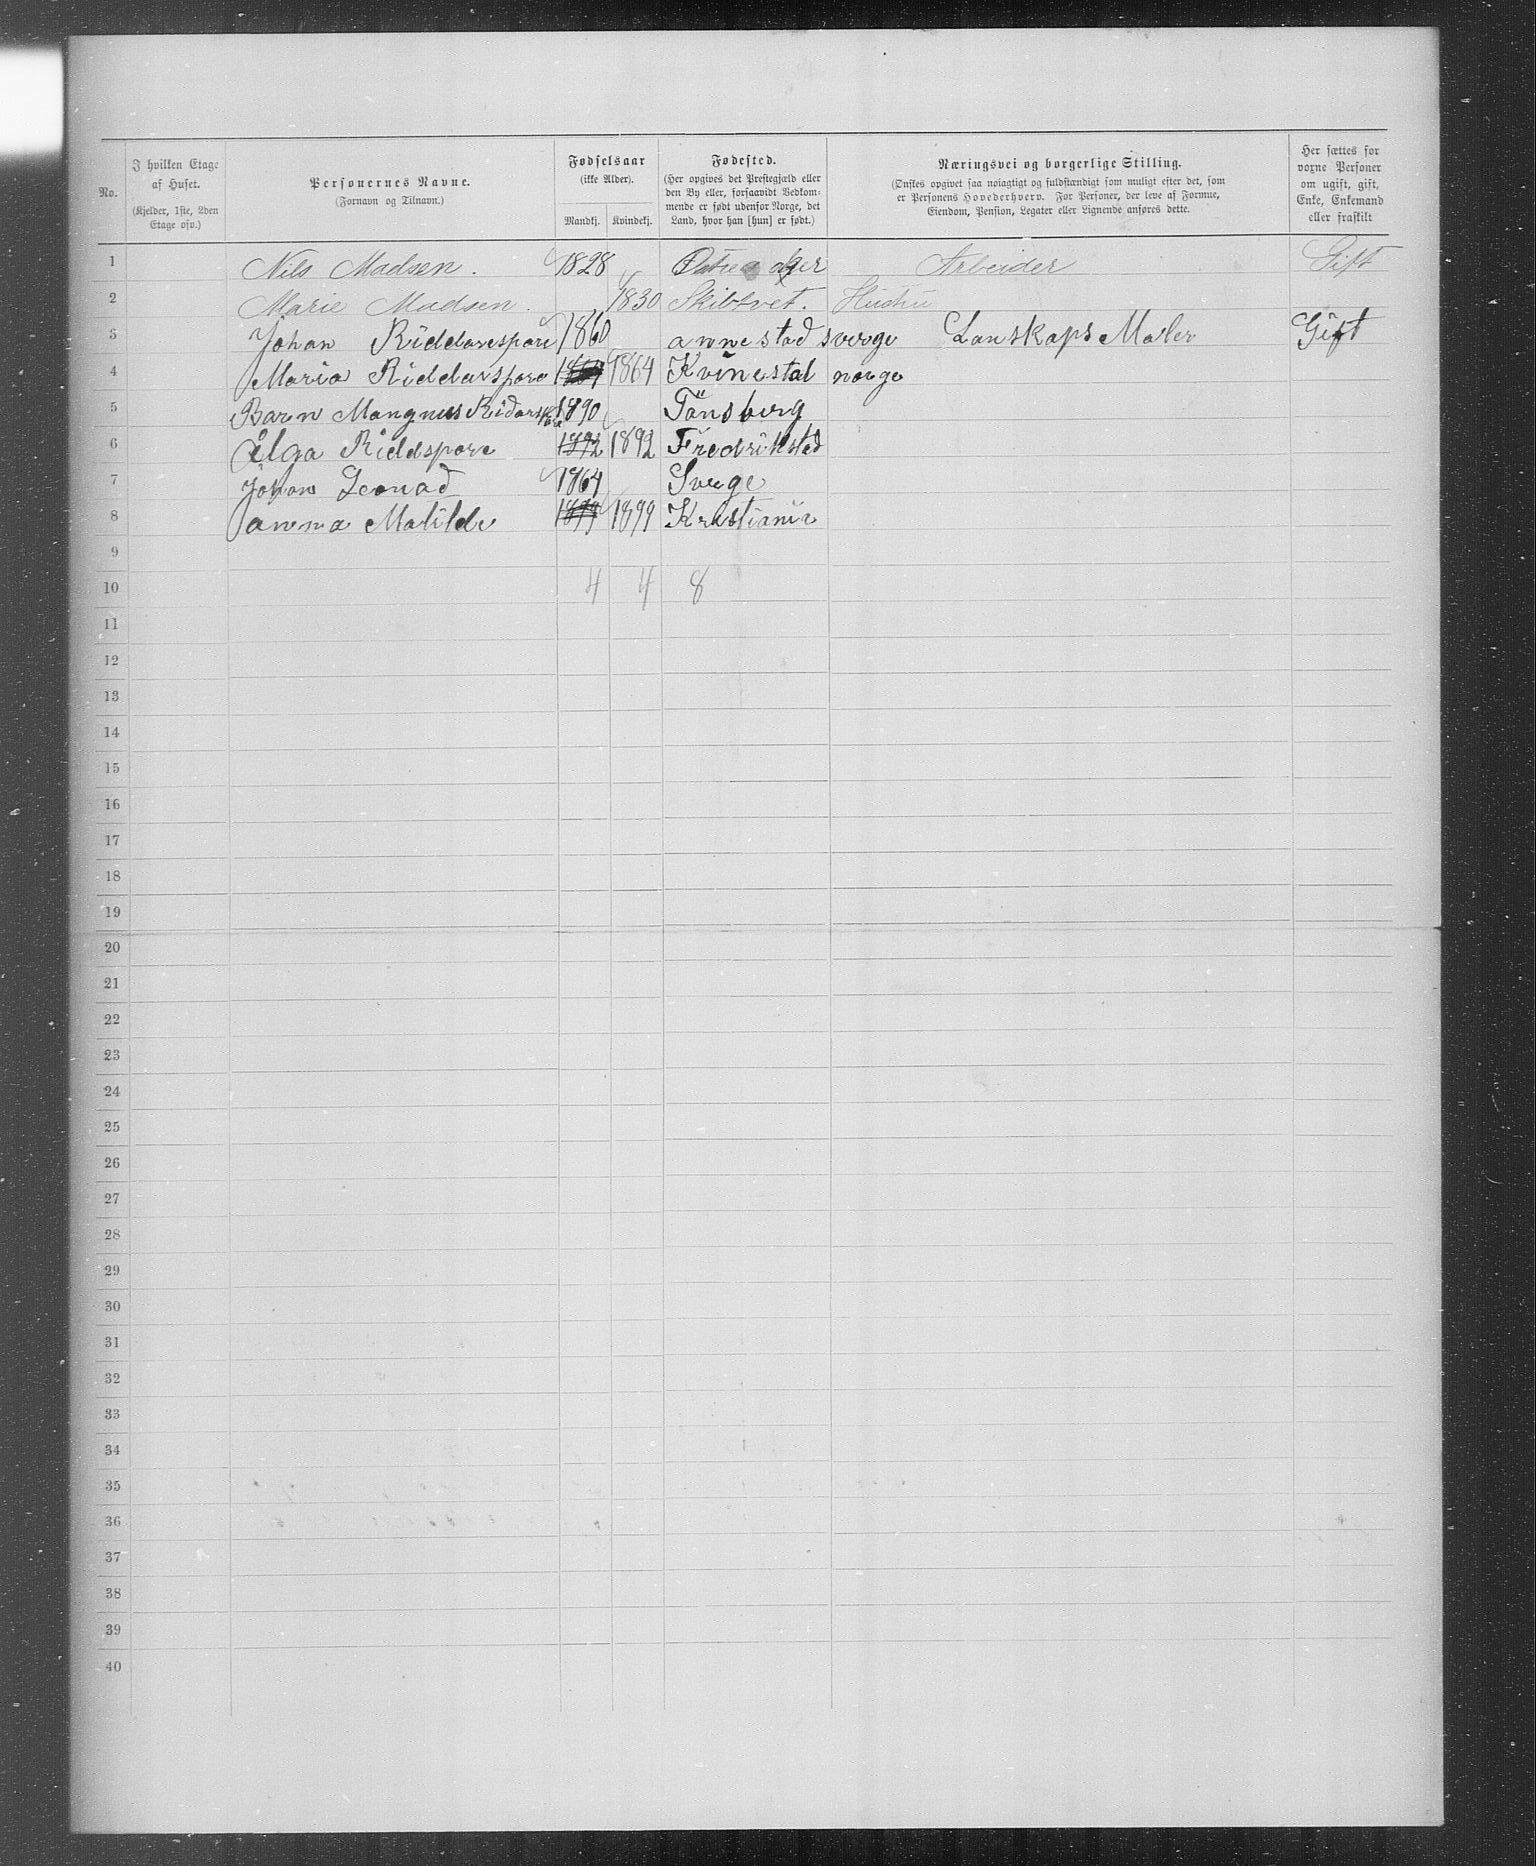 No.
I hvilken Etage af Huset. (Kjelder, 1ste, 2den Etage osv.)
Personernes Navne. (Fornavn og Tilnavn.)
Fødselsaar (ikke Alder). Mandkj. Kvindekj.
Fødested. (Her opgives det Prestegjæld eller den By eller, forsaavidt Vedkommende er født udenfor Norge, det Land, hvor han [hun] er født.)
Næringsvei og borgerlige Stilling. (Ønskes opgivet saa nøiagtigt og fuldstændigt som muligt efter det, som er Personens Hovederhverv. For Personer, der leve af Formue, Eiendom, Pension, Legater eller Lignende anføres dette.
Her sættes for voxne Personer om ugift, gift, Enke, Enkemand eller fraskilt
1 Nils Madsen. 1828 Arbeider Gift
2 Marie Madsen. 1830 Skibtvet. Hustru
3 Johan Riddarespore 1860 annestad sverge Lanskaps Maler Gift
4 Maria Riddarspore 1864 Kvinestal norge
5 Barn Mangnus Ridarspore 1890 Tönsberg
6 Elga Riddspore 1892 1892 Fredrikstad
7 Johan Leonad 1864 Sverge
8 anna Matilde 1899 1899 Kristiania
9
10 4 4 8
11
12
13
14
15
16
17
18
19
20
21
22
23
24
25
26
27
28
29
30
31
32
33
34
35
36
37
38
39
40